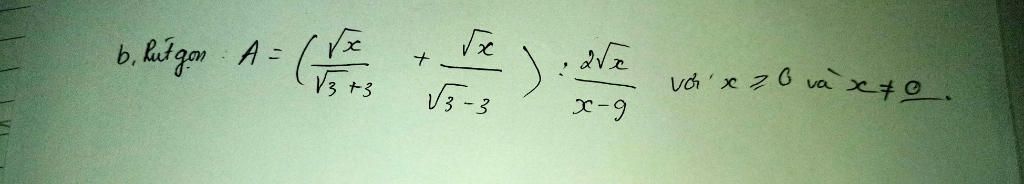 b, Rút gọn : A = ( √x / (√3 + 3) + √x / (√3 - 3) ) : 2√x / (x - 9) với x ≥ 0 và x ≠ 0.